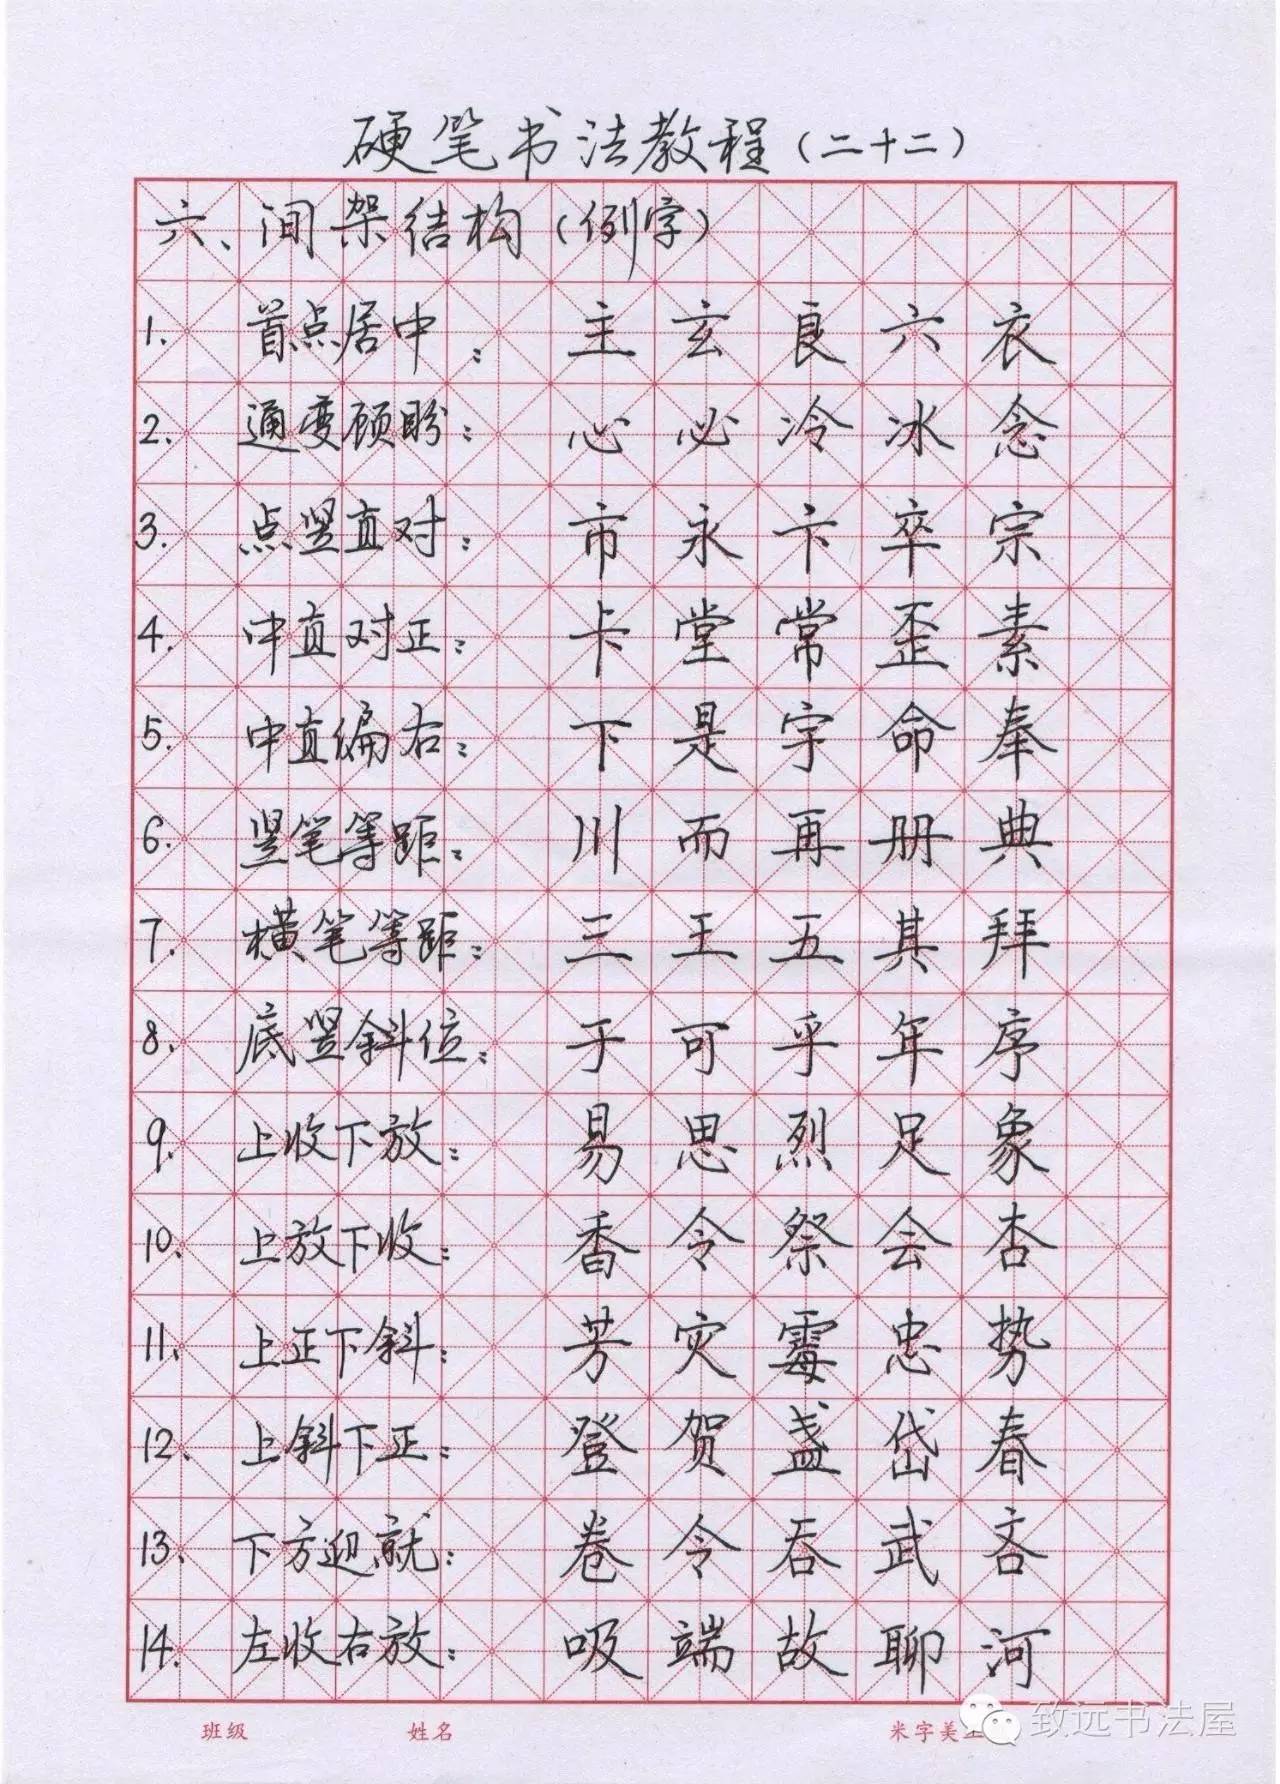 硬笔书法教程（二十二）
六、间架结构（例字）
1. 首点居中：主玄良六衣
2. 通变顾盼：心必冷冰念
3. 点竖直对：市永卞卒宗
4. 中直对正：卡堂常歪素
5. 中直偏右：下是字命奉
6. 竖笔等距：川而再册典
7. 横笔等距：三王五其拜
8. 底竖斜位：于可乎年序
9. 上收下放：易思烈足象
10. 上放下收：香令祭会杏
11. 上正下斜：芳灾霉忠势
12. 上斜下正：登贺盏岱春
13. 下方迎就：卷令吞武吝
14. 左收右放：吸端故聊河
班级 姓名 米字美工
致远书法屋